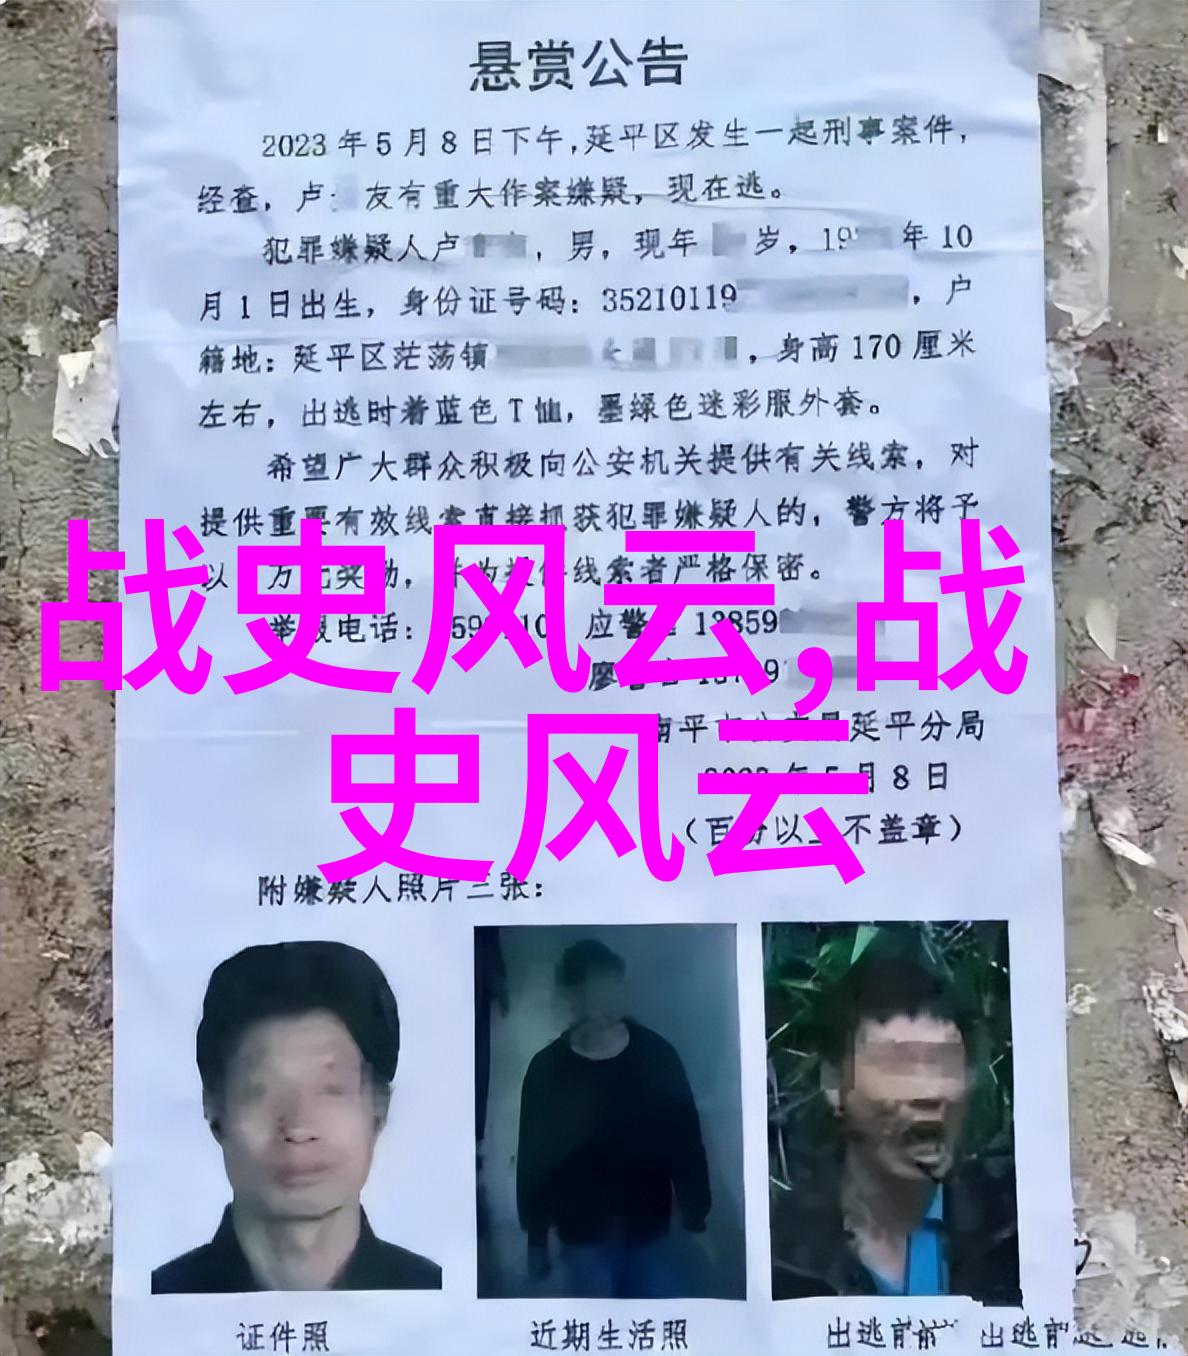 悬赏公告
2023年5月8日下午,延平区发生一起刑事案件,
经查,卢 友有重大作案嫌疑,现在逃。
犯罪嫌疑人卢 ,男,现年 岁,19 年10
月1日出生,身份证号码:35210119 ,户
籍地:延平区茫荡镇 ,身高170厘米
左右,出逃时着蓝色T恤,墨绿色迷彩服外套。
希望广大群众积极向公安机关提供有关线索,对
提供重要有效线索直接抓获犯罪嫌疑人的,警方将予
以 万 奖励, 线索者严格保密。
战史风云,战
举报电话: 应警 13859
廖
南平 延平分局
史风云
年5月8日
(百 以 不盖章)
附嫌疑人照片三张:
证件照
近期生活照
出逃前 出逃前